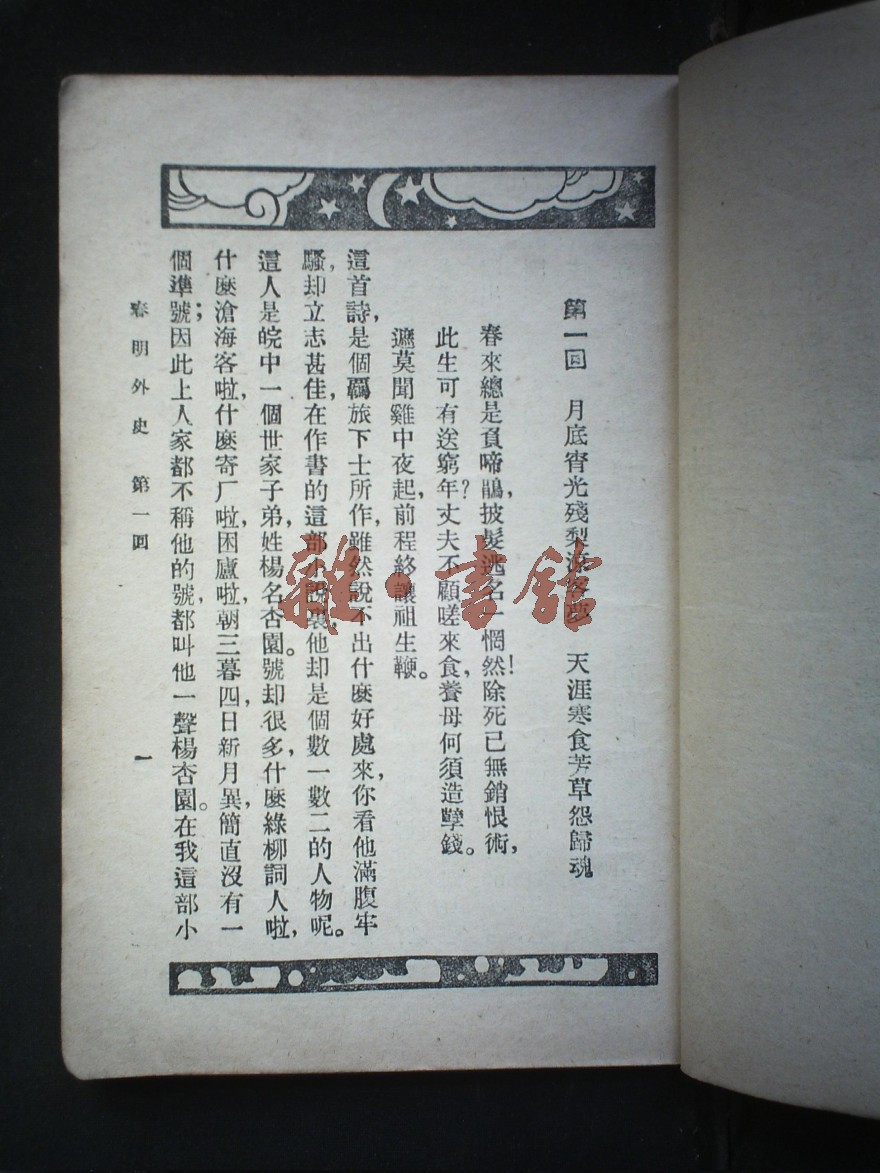 第一回　月底宵光殘梨涼客夢　天涯寒食芳草怨歸魂
春來總是負啼鵑，披髮逃名一惘然！除死已無銷恨術，
此生可有送窮年？丈夫不顧嗟來食，養母何須造孽錢。
遮莫聞雞中夜起，前程終讓祖生鞭。
這首詩，是個羈旅下士所作，雖然說不出什麽好處來，你看他滿腹牢
騷，却立志甚佳，在作書的這部小說裏，他却是個數一數二的人物呢。
這人是皖中一個世家子弟，姓楊名杏園。號却很多，什麽綠柳詞人啦，
什麽滄海客啦，什麽寄厂啦，困廬啦，朝三暮四，日新月異，簡直沒有一
個準號；因此上人家都不稱他的號，都叫他一聲楊杏園。在我這部小
春明外史　第一回　一
雜·書館